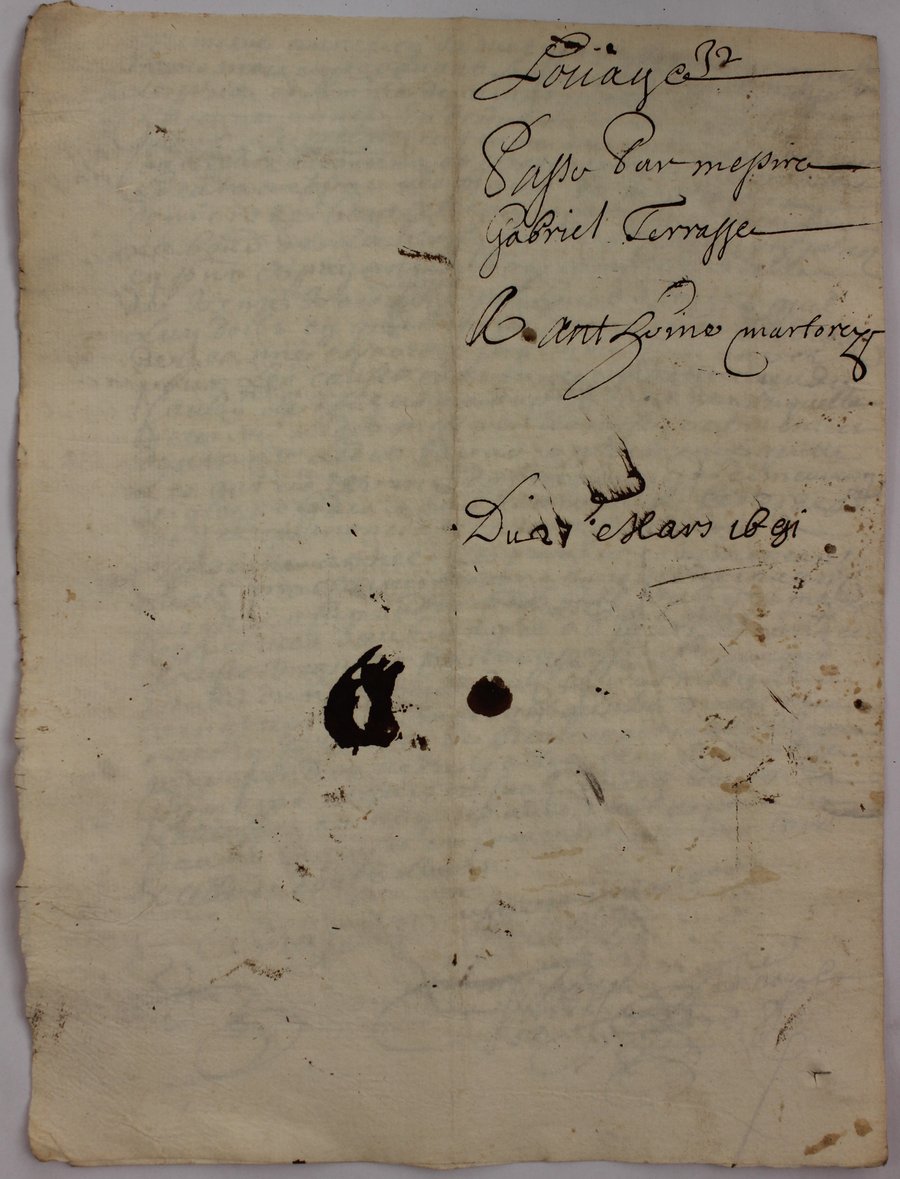 Loüage 32
Passe Par messire
Gabriel Terrasse
A anthoine martorez
Du 27 Mars 1691